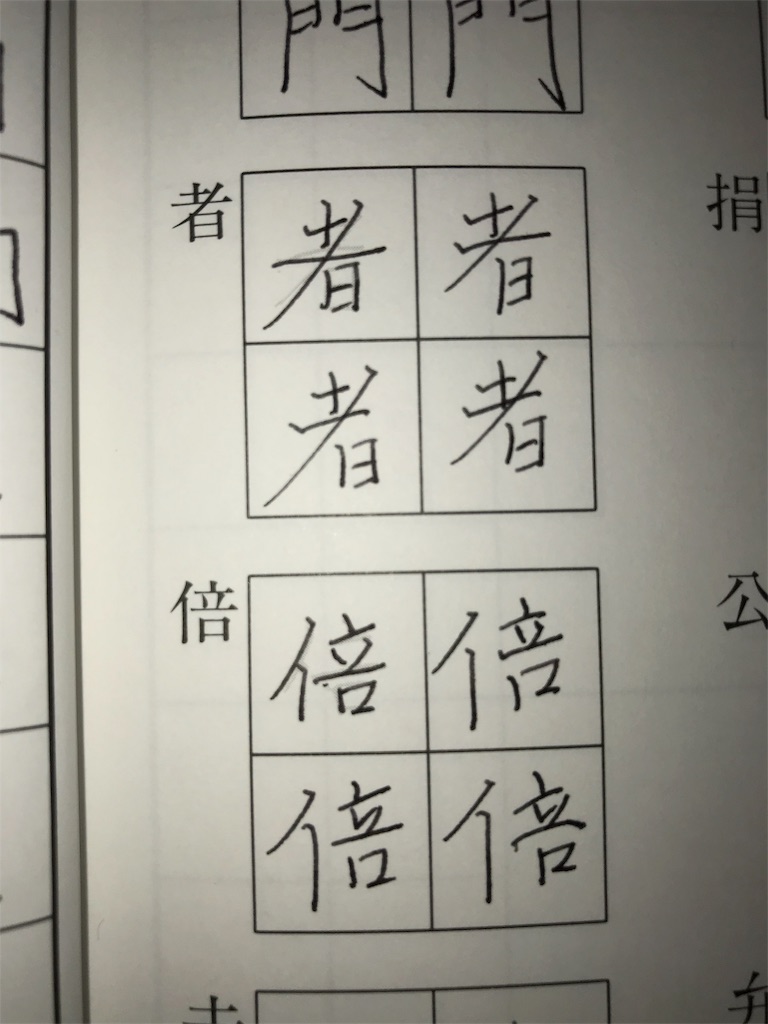 門 門
者 者 者 捐
者 者
倍 倍 倍 公
倍 倍